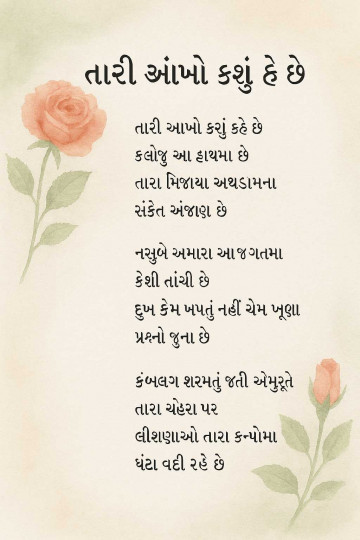 તારી આંખો કશું હે છે
તારી આખો કચું કહે છે
કલોજુ આ હાથમા છે
તારા મિજાયા અથડામના
સંકેત અંજાણ છે
નસુબે અમારા આ જગતમા
કેશી તાંચી છે
દુખ કેમ ખપતું નહીં ચેમ ખૂણા
પ્રશ્નો જુના છે
કંબલગ શરમતું જતી એમુરૂતે
તારા ચહેરા પર
લીશણાઓ તારા કન્પોમા
ઘંટા વદી રહે છે